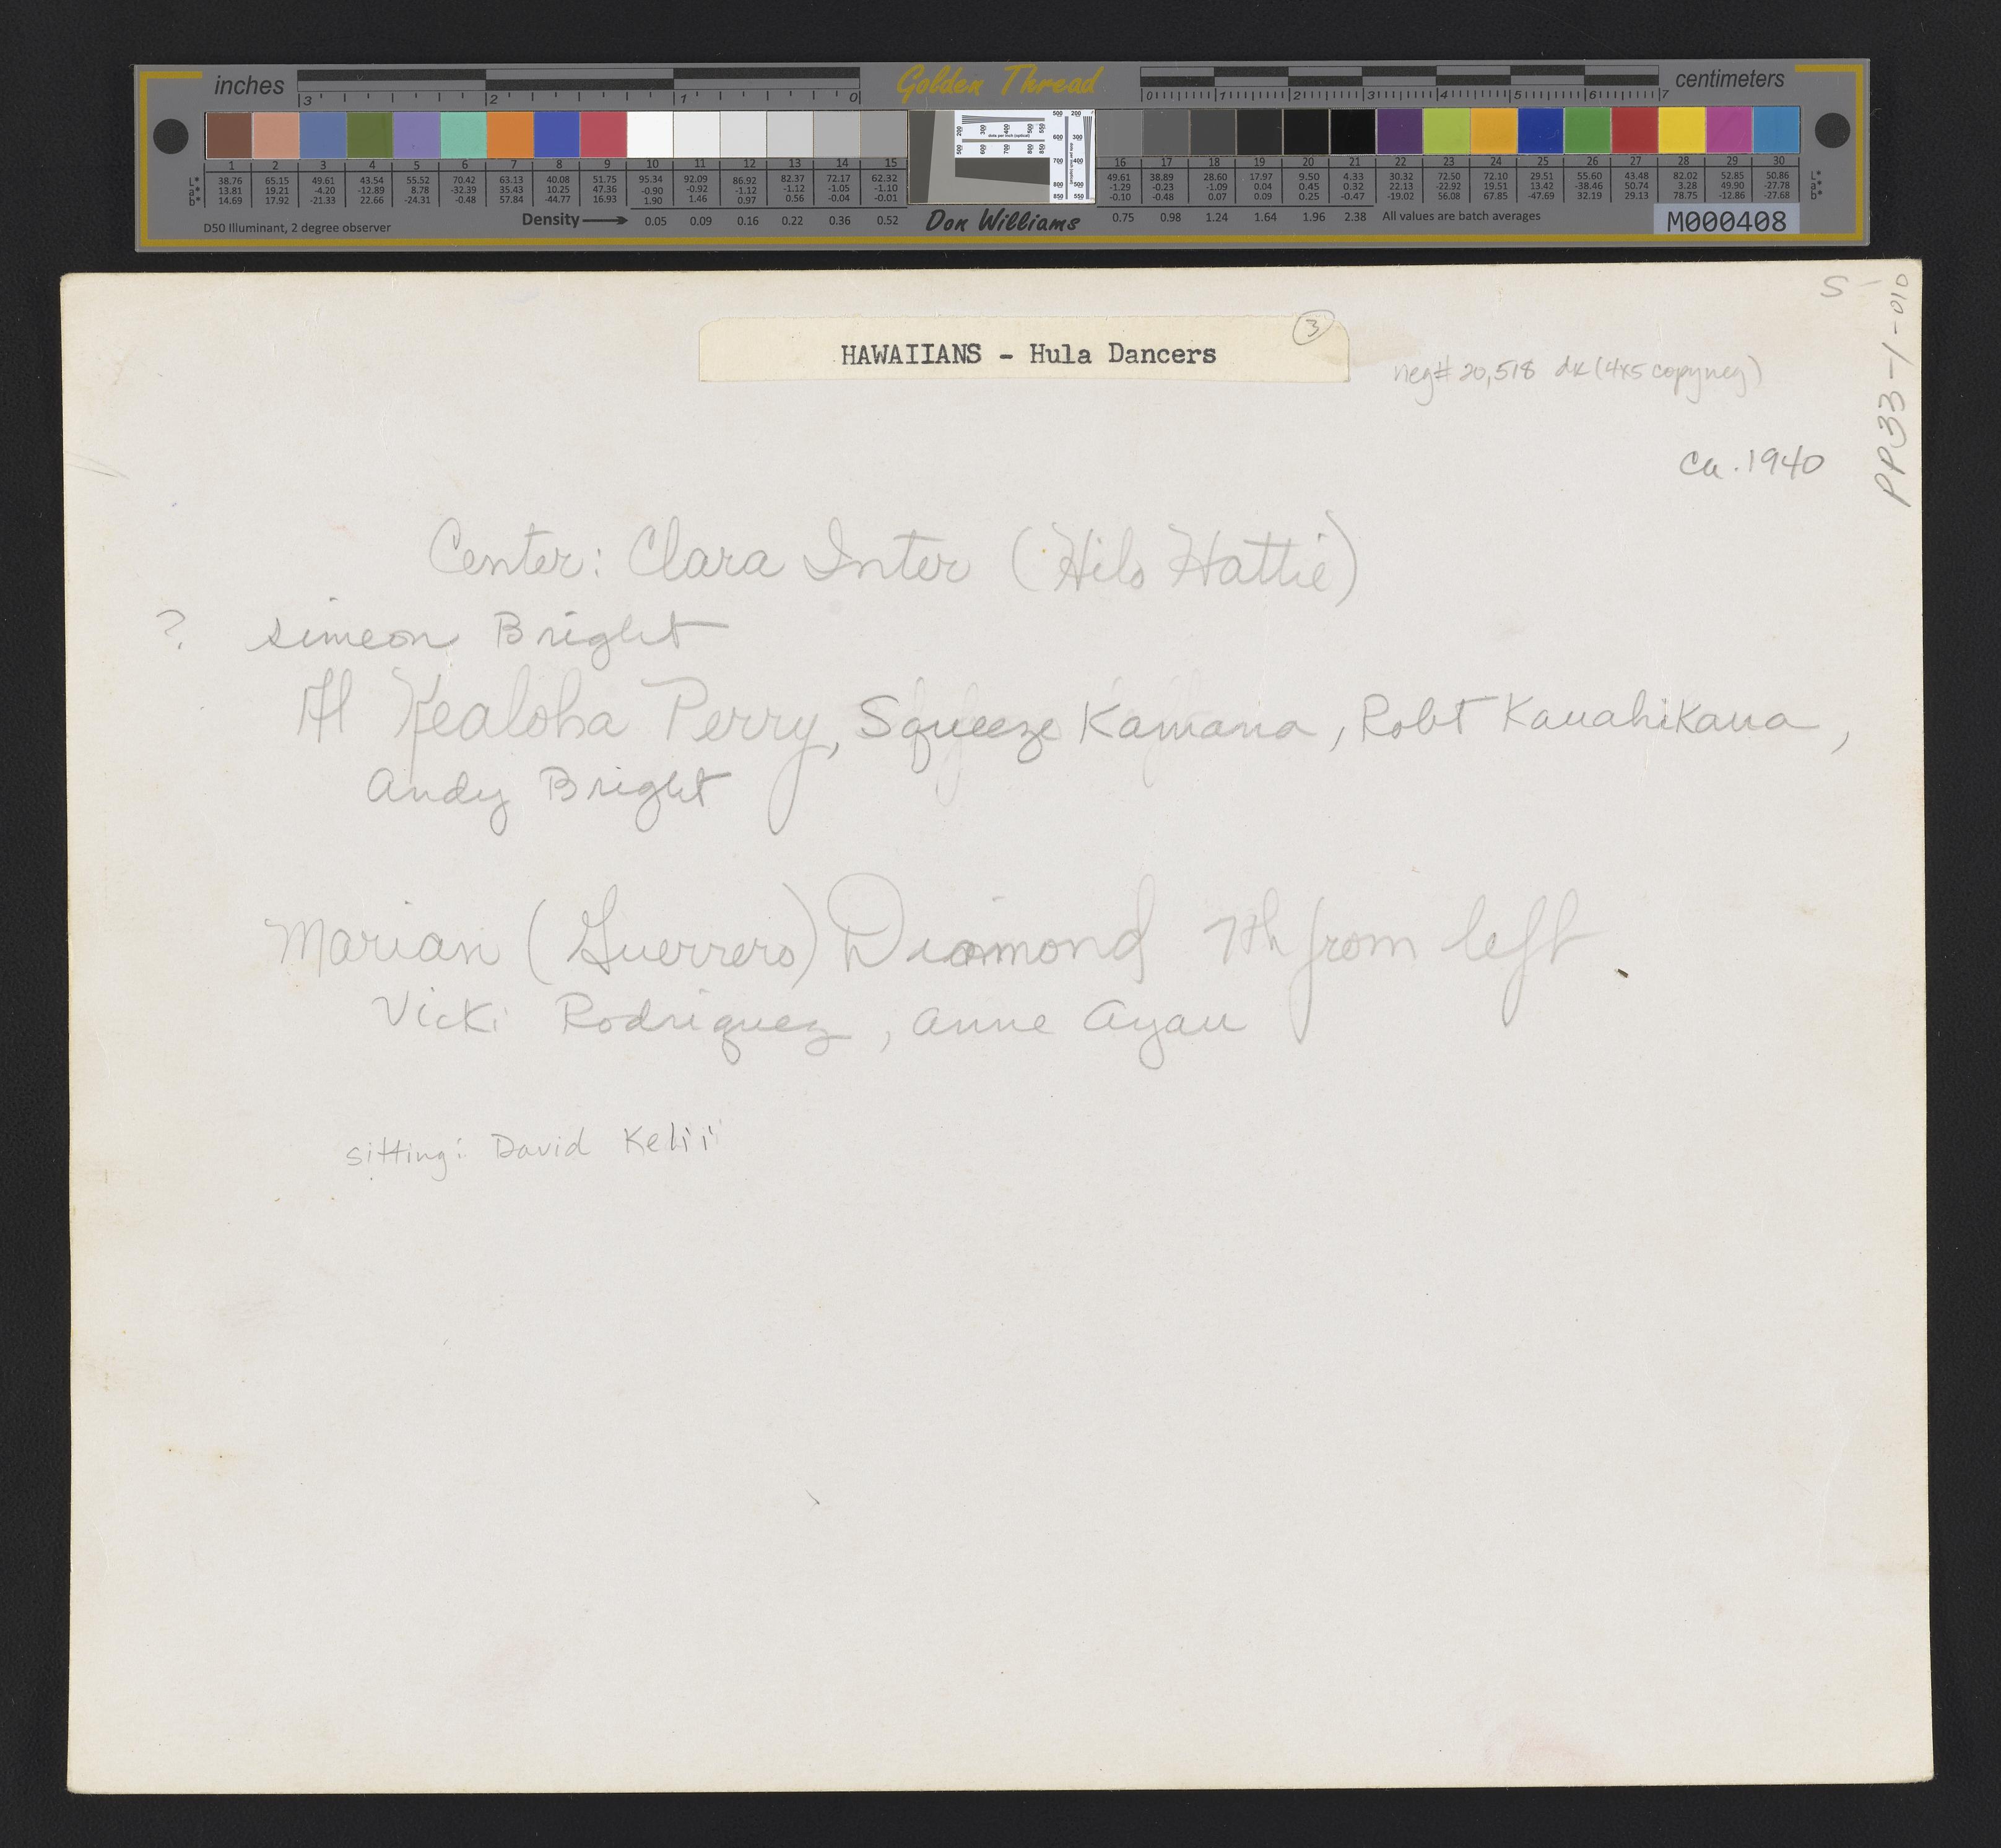 inches Golden Thread centimeters
3 2 1 0 0 1 2 3 4 5 6 7
1 2 3 4 5 6 7 8 9 10 11 12 13 14 15 16 17 18 19 20 21 22 23 24 25 26 27 28 29 30
L* 38.76 65.15 49.61 43.54 55.52 70.42 63.13 40.08 51.75 95.34 92.09 86.92 82.37 72.17 62.32 49.61 38.89 28.60 17.97 9.50 4.33 30.32 72.50 72.10 29.51 55.60 43.48 82.02 52.85 50.86 L*
a* 13.81 19.21 -4.20 -12.89 8.78 -32.39 35.43 10.25 47.36 -0.90 -0.92 -1.12 -1.12 -1.05 -1.10 -1.29 -0.23 -1.09 0.04 0.45 0.32 22.13 -22.92 19.51 13.42 -38.46 50.74 3.28 49.90 -27.78 a*
b* 14.69 17.92 -21.33 22.66 -24.31 -0.48 57.84 -44.77 16.93 1.90 1.46 0.97 0.56 -0.04 -0.01 -0.10 -0.48 0.07 0.09 0.25 -0.47 -19.02 56.08 67.85 -47.69 32.19 29.13 78.75 -12.86 -27.68 b*
D50 Illuminant, 2 degree observer Density 0.05 0.09 0.16 0.22 0.36 0.52 Don Williams 0.75 0.98 1.24 1.64 1.96 2.38 All values are batch averages M000408
S-
PP33-1-010
3
HAWAIIANS - Hula Dancers
neg# 20,518 dk (4x5 copyneg)
ca. 1940
Center: Clara Inter (Hilo Hattie)
? simeon Bright
Al Kealoha Perry, Squeeze Kamana, Robt Kauahikaua,
Andy Bright
Marian (Guerrero) Diamond 7th from left
Vicki Rodriguez, Anne Ayau
sitting: David Kelii